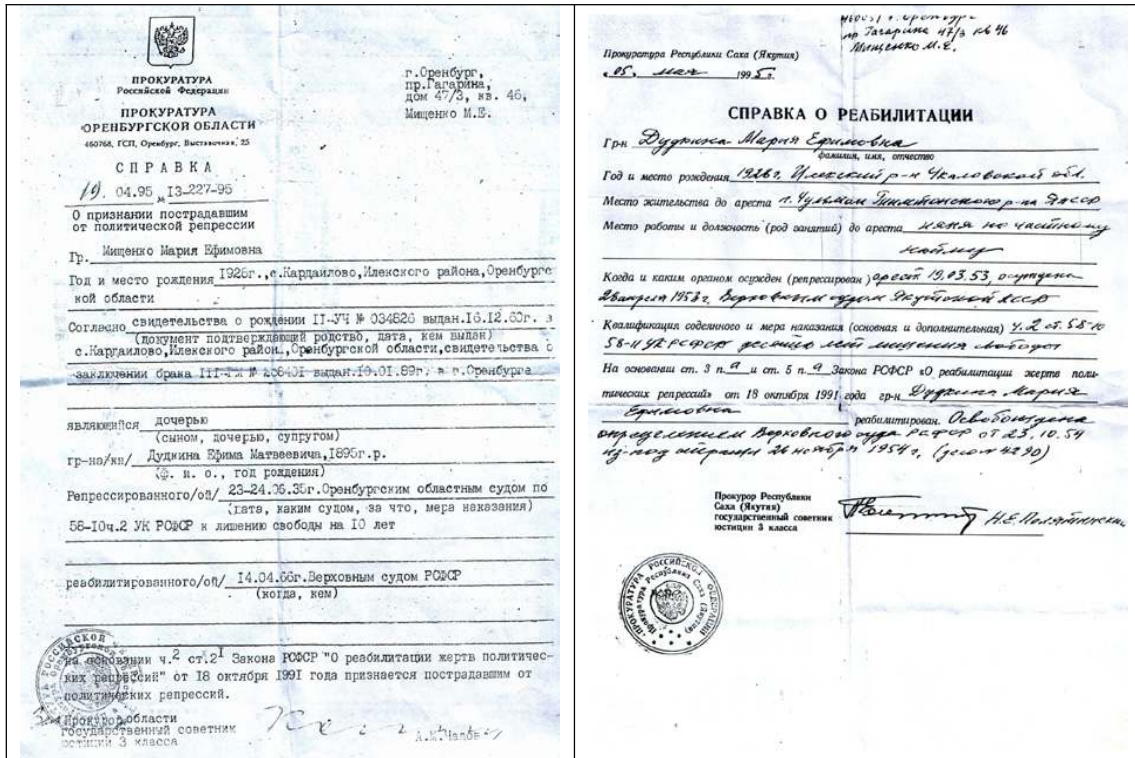 ПРОКУРАТУРА
Российской Федерации
ПРОКУРАТУРА
ОРЕНБУРГСКОЙ ОБЛАСТИ
460768, ГСП, Оренбург, Выставочная, 25
СПРАВКА
19. 04.95 № 13-227-95
О признании пострадавшим
от политической репрессии
г.Оренбург,
пр.Гагарина,
дом 47/3, кв. 46,
Мищенко М.Е.
Гр. Мищенко Мария Ефимовна
Год и место рождения 1926г.,с.Кардаилово,Илекского района,Оренбургс
кой области
Согласно свидетельства о рождении II-УЧ № 034826 выдан.16.12.60г. в
(документ подтверждающий родство, дата, кем выдан)
с.Кардаилово,Илекского район.,Оренбургской области,свидетельства о
заключении брака выдан.10.01.89г. в г.Оренбурге
являющийся дочерью
(сыном, дочерью, супругом)
гр-на/ки/ Дудкина Ефима Матвеевича,1895г.р.
(ф. и. о., год рождения)
Репрессированного/ой/ 23-24.06.35г.Оренбургским областным судом по
(дата, каким судом, за что, мера наказания)
58-10ч.2 УК РСФСР к лишению свободы на 10 лет
реабилитированного/ой/ 14.04.66г.Верховным судом РСФСР
(когда, кем)
на основании ч.2 ст.2 1 Закона РСФСР "О реабилитации жертв политичес-
ких репрессий" от 18 октября 1991 года признается пострадавшим от
политических репрессий.
Прокурор области
государственный советник
юстиции 3 класса
пр Гагарина 47/3 кв 46
Мищенко М.Е.
Прокуратура Республики Саха (Якутия)
"05" мая 1995 г.
СПРАВКА О РЕАБИЛИТАЦИИ
Гр-н Дудкина Мария Ефимовна
фамилия, имя, отчество
Год и место рождения 1926г. Илекский р-н Чкаловской обл.
Место жительства до ареста п. Чульман Тимптонского р-на ЯАССР
Место работы и должность (род занятий) до ареста няня по частному
найму
Когда и каким органом осужден (репрессирован) арест 19.03.53, осуждена
28 апреля 1953г. Верховным судом Якутской АССР
Квалификация содеянного и мера наказания (основная и дополнительная) ч.2 ст.58-10
58-11 УК РСФСР десять лет лишения свободы
На основании ст. 3 п. а и ст. 5 п. а Закона РСФСР «О реабилитации жертв поли-
тических репрессий» от 18 октября 1991 года гр-н Дудкина Мария
Ефимовна реабилитирован. Освобождена
определением Верховного суда РСФСР от 23.10.54
из-под стражи 26 ноября 1954г.
Прокурор Республики
Саха (Якутия)
государственный советник
юстиции 3 класса
ПРОКУРАТУРА РОССИЙСКОЙ ФЕДЕРАЦИИ
Прокуратура Республики Саха (Якутия)